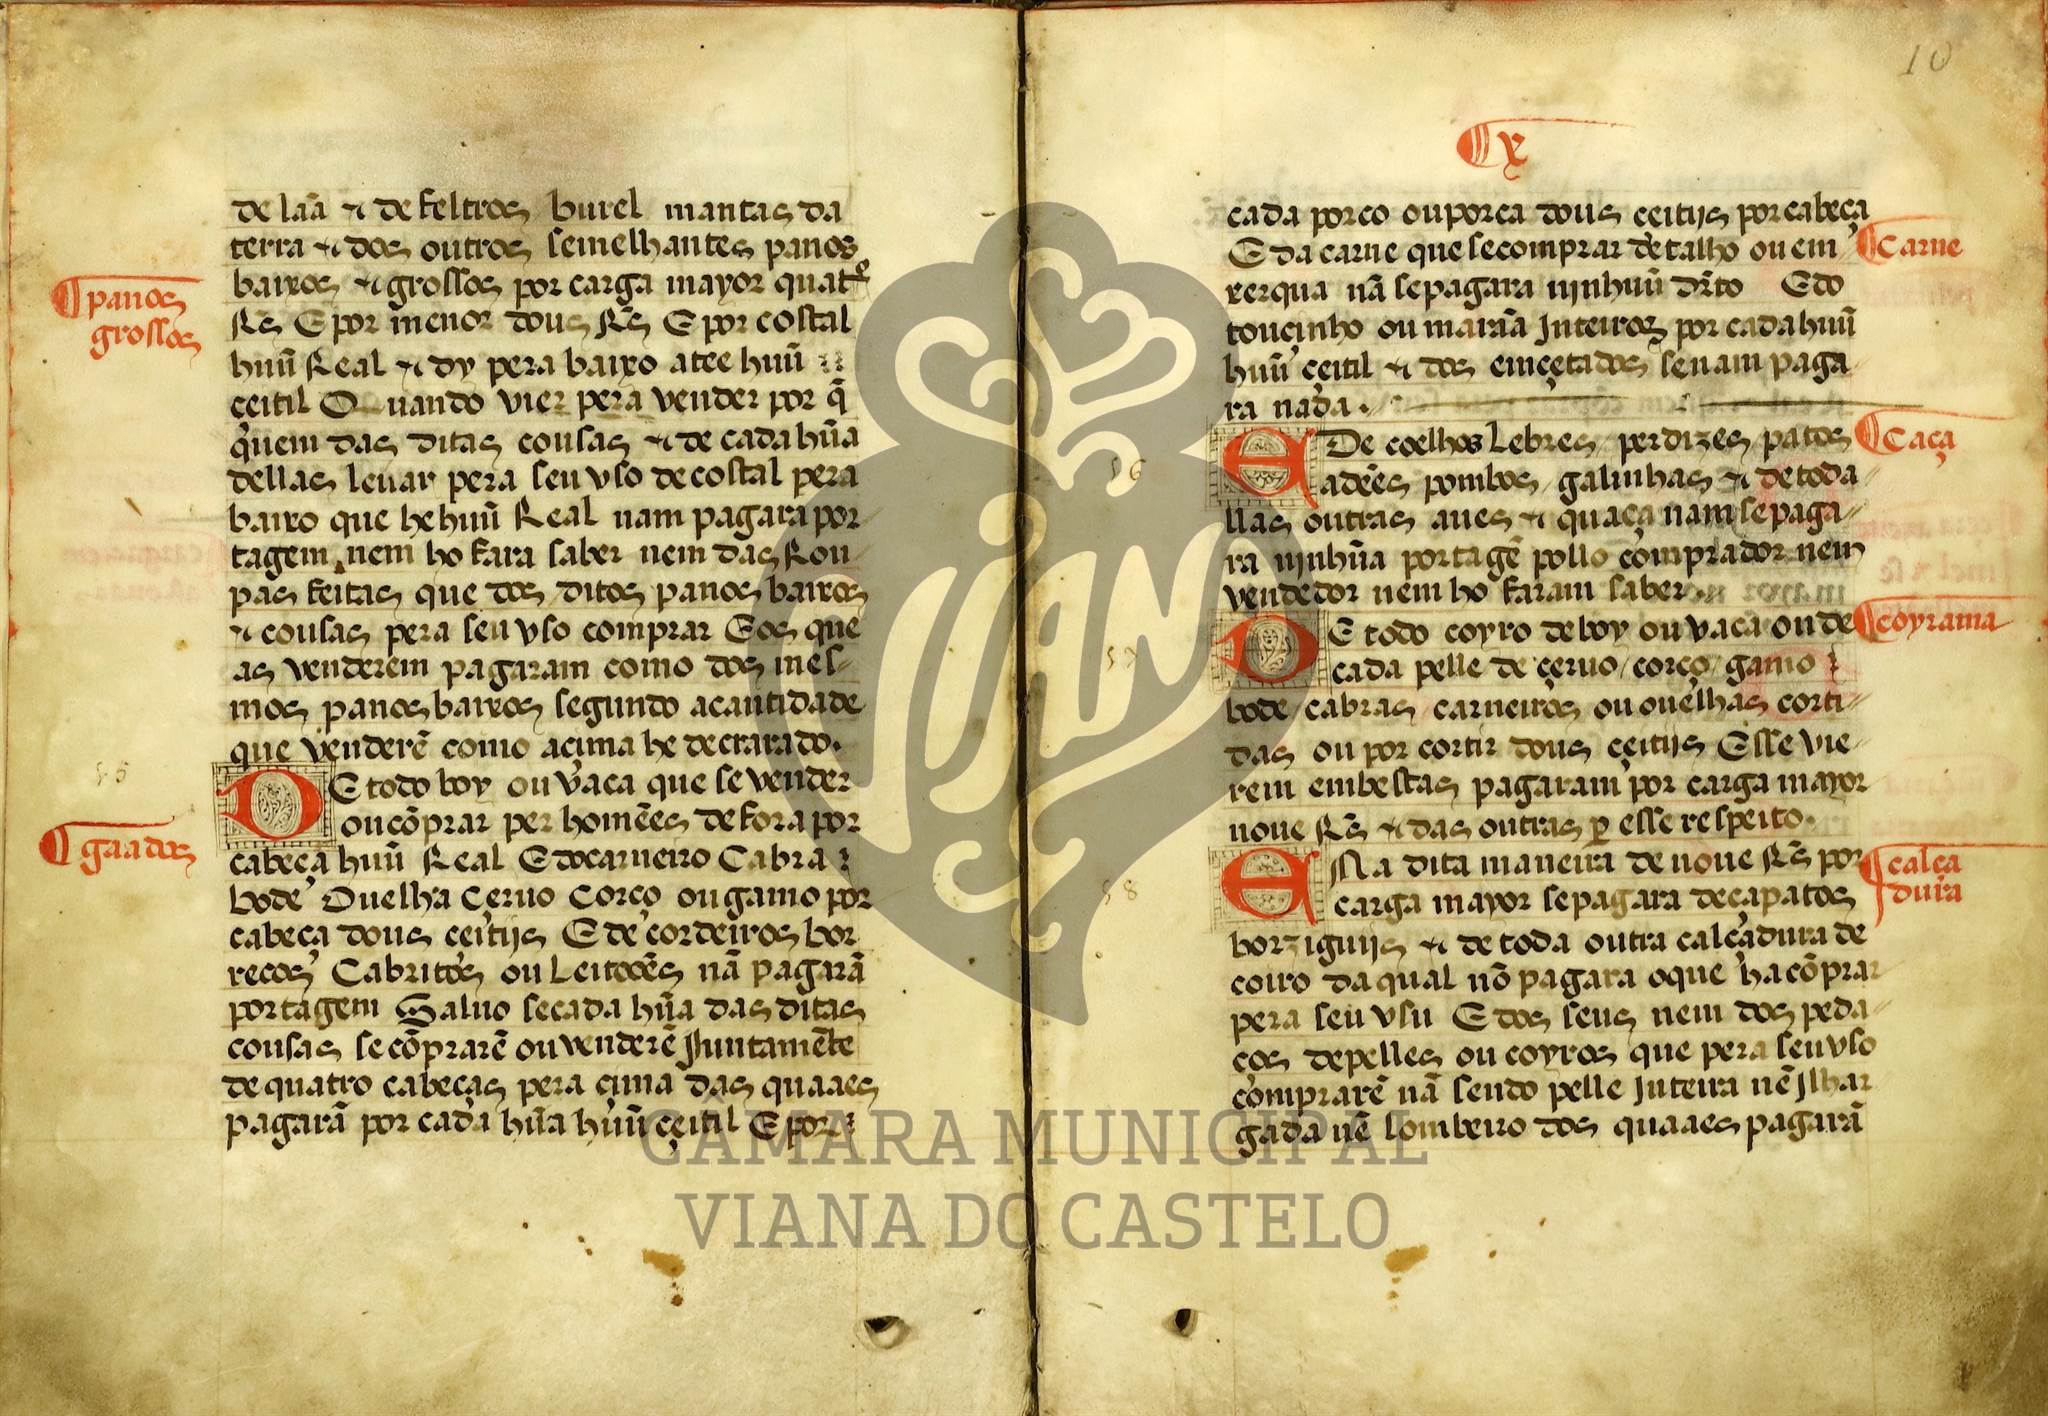 de lãa & de feltros burel mantas da
terra & dos outros semelhantes panos
baixos & grossos por carga mayor quatro
Rs E por menor dous Rs E por costal
huũ Real & dy pera baixo atee huũ
çeitil Quando vier pera vender por q̃
quem das ditas cousas & de cada hũa
dellas leuar pera seu vso de costal pera
baixo que he huũ Real nam pagara por
tagem nem ho fara saber nem das Rou
pas feitas que dos ditos panos baixos
& cousas pera seu vso comprar E os que
as venderem pagaram como dos mes-
mos panos baixos segundo a cantidade
que venderẽ como açima he decrarado.
panos
grossos
DE todo boy ou vaca que se vender
ou cõprar per homẽes de fora por
cabeça huũ Real E do carneiro Cabra
bode Ouelha Çeruo Corço ou gamo por
cabeça dous çeitijs E de cordeiros bor
regos Cabritos ou Leitoões nã pagarã
portagem Saluo se cada hũa das ditas
cousas se cõprarẽ ou venderẽ Juntamẽte
de quatro cabeças pera çima das quaaes
pagarã por cada hũa huũ çeitil E por
gaados
10
x
cada porco ou porca dous çeitijs por cabeça
E da carne que se comprar de talho ou em
xerqua nã se pagara ninhuũ drto E do
touçinho ou marãa Inteiros por cada huũ
huũ çeitil & dos emçetados se nam paga
ra nada.
Carne
E De coelhos Lebres perdizes patos
adeẽs pombos galinhas & de toda
llas outras aues & quaça nam se paga
ra ninhũa portagẽ pollo comprador nem
vendedor nem ho faram saber
Caça
56
DE todo coyro de boy ou vaca ou de
cada pelle de çeruo corço gamo
bode cabras carneiros ou ouelhas corti
das ou por cortir dous çeitijs E sse vie
rem em bestas pagaram por carga mayor
noue Rs & das outras ꝑ esse respeito.
coyrama
57
E Na dita maneira de noue Rs por
carga mayor se pagara de çapatos
borziguijs & de toda outra calçadura de
coiro da qual nõ pagara o que ha cõprar
pera seu vsu E dos seus nem dos peda
ços de pelles ou coyros que pera seu vso
comprarẽ nã sendo pelle Inteira nẽ Ilhar
gada nẽ lombeiro dos quaaes pagarã
calça
dura
58
CÂMARA MUNICIPAL
VIANA DO CASTELO